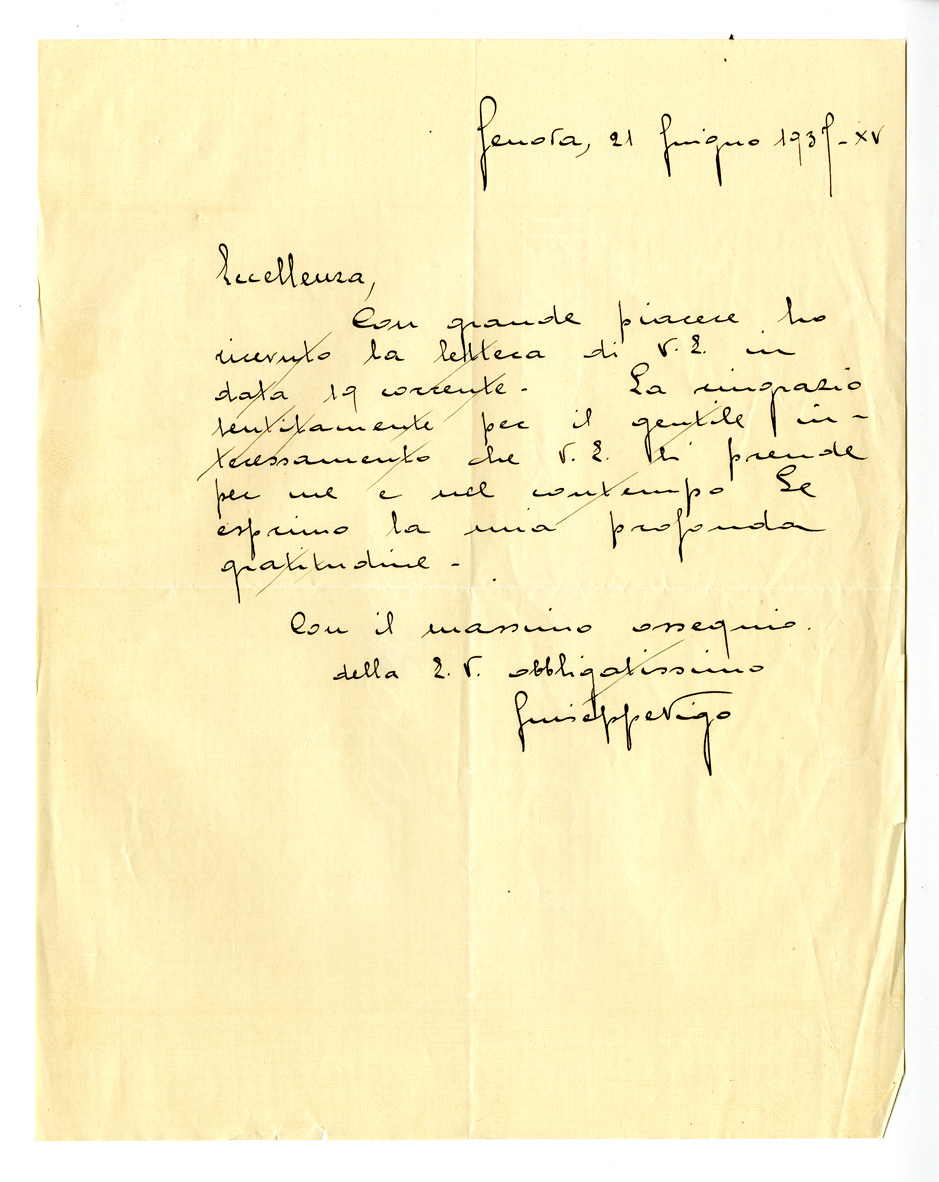 Genova, 21 Giugno 1937-XV
Eccellenza,
Con grande piacere ho
ricevuto la lettera di V. E. in
data 19 corrente. La ringrazio
sentitamente per il gentile in-
teressamento che V. E. si prende
per me e nel contempo Le
esprimo la mia profonda
gratitudine.
Con il massimo ossequio.
della E. V. obbligatissimo
Giuseppe Vigo